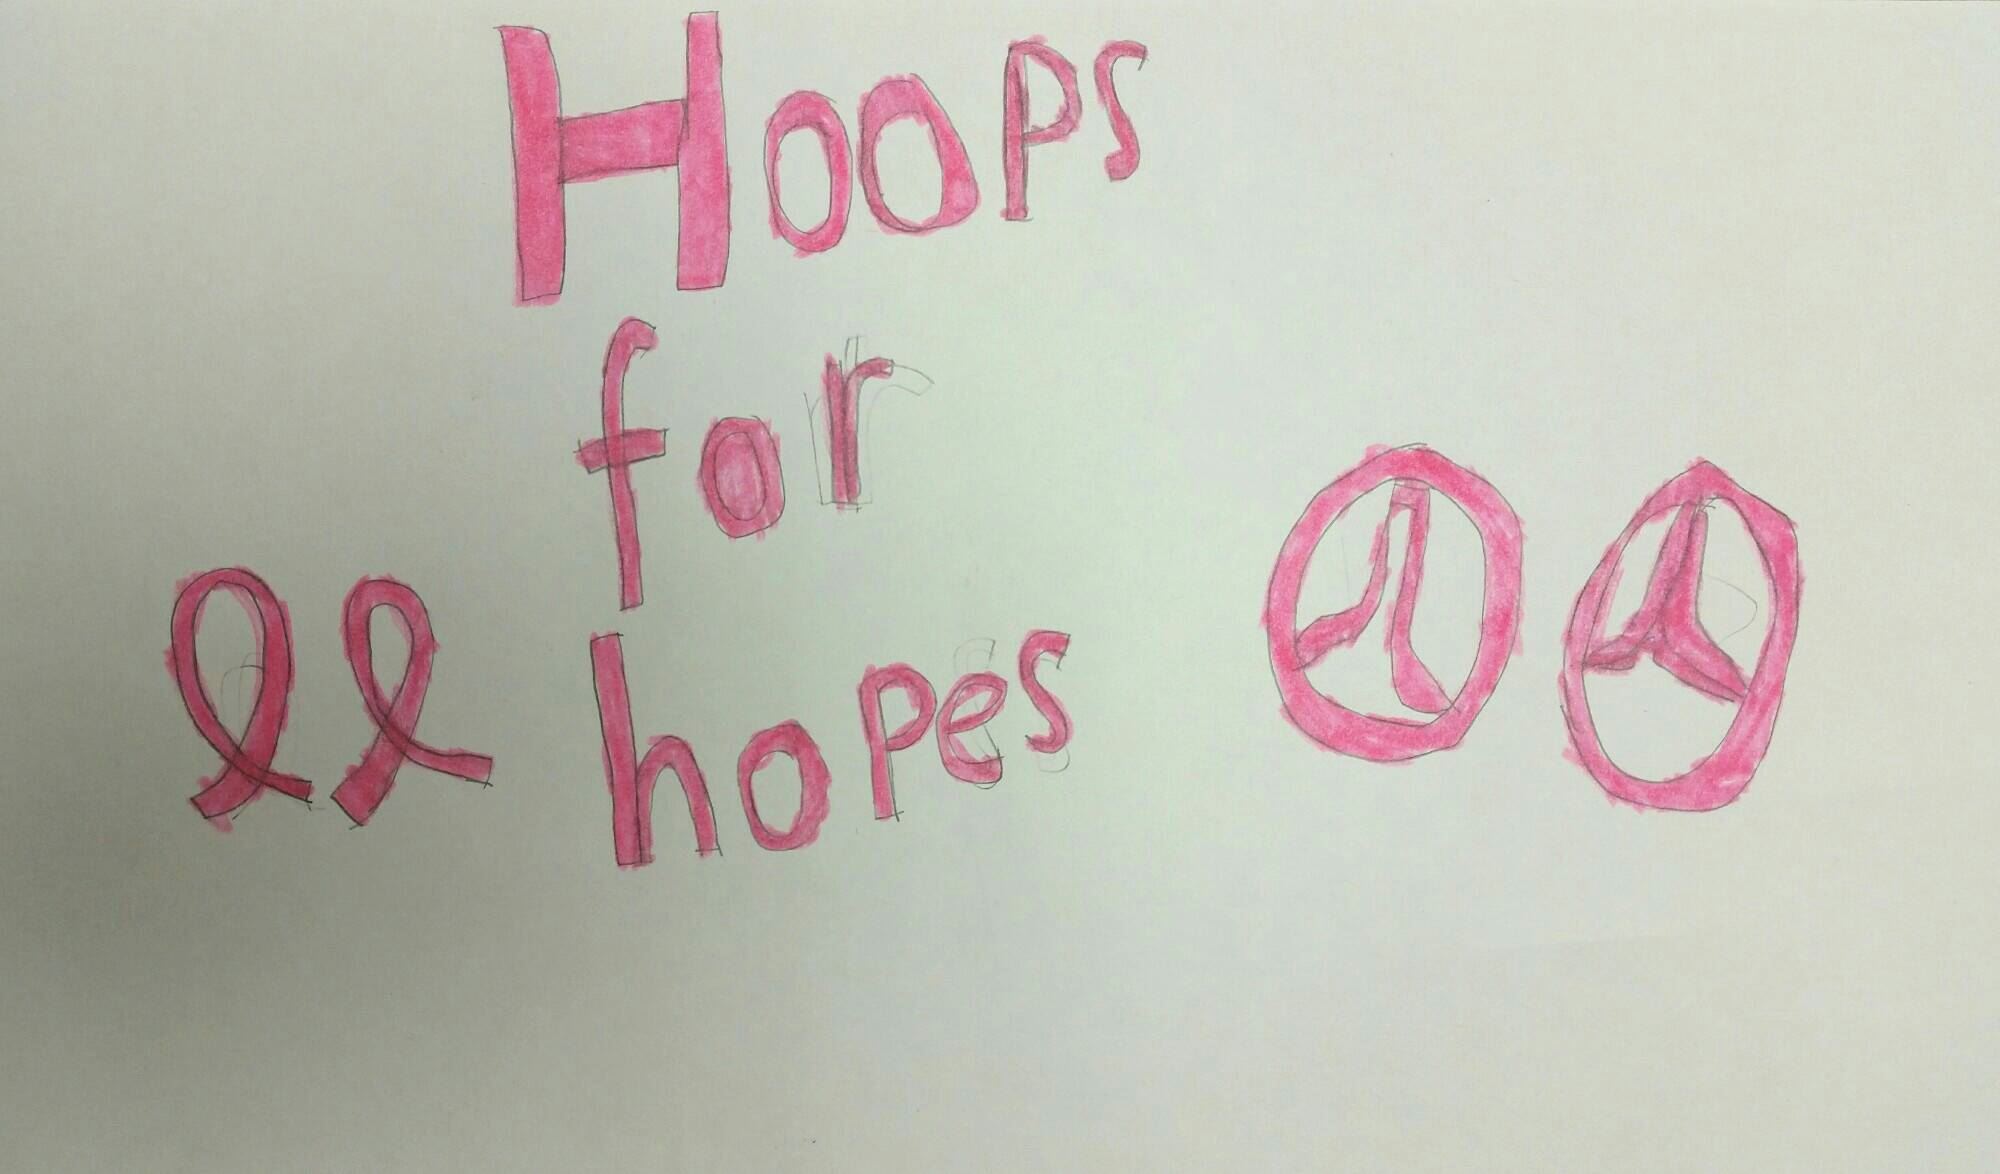 Hoops
for
hopes